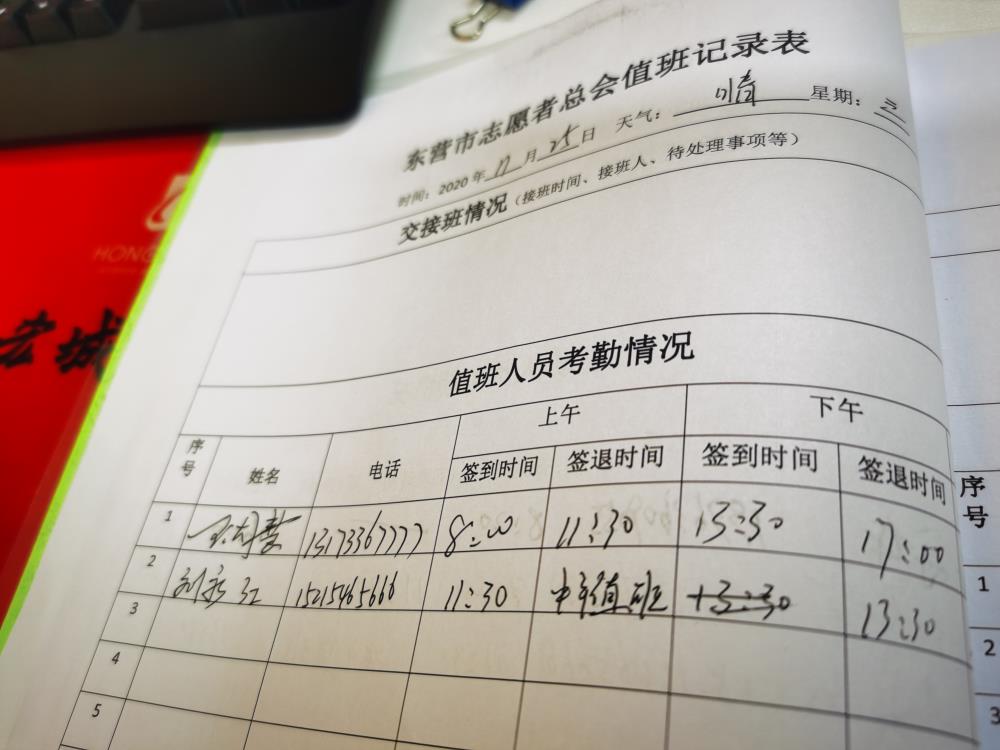 东营市志愿者总会值班记录表
时间：2020年 月25日 天气：晴 星期：三
交接班情况（接班时间、接班人、待处理事项等）
值班人员考勤情况
序号 姓名 电话 上午 下午
签到时间 签退时间 签到时间 签退时间
1 13173367777 8:00 11:30 13:30 17:00
2 15215465666 11:30 中午值班 13:30 13:30
3
4
5
序号
1
2
3
HONG
宏城